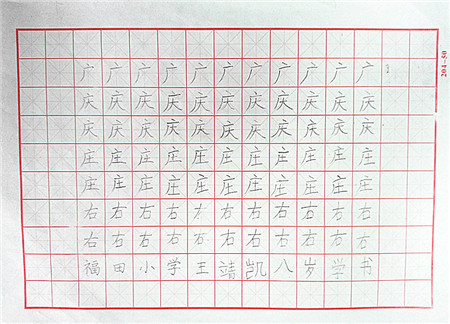 广广广广广广广广广广广
庆庆庆庆庆庆庆庆庆庆庆
庆庆庆庆庆庆庆庆庆庆庆
庄庄庄庄庄庄庄庄庄庄庄
庄庄庄庄庄庄庄庄庄庄庄
右右右右右右右右右右右
右右右右右右右右右右右
福田小学王靖凯八岁学书
204—50